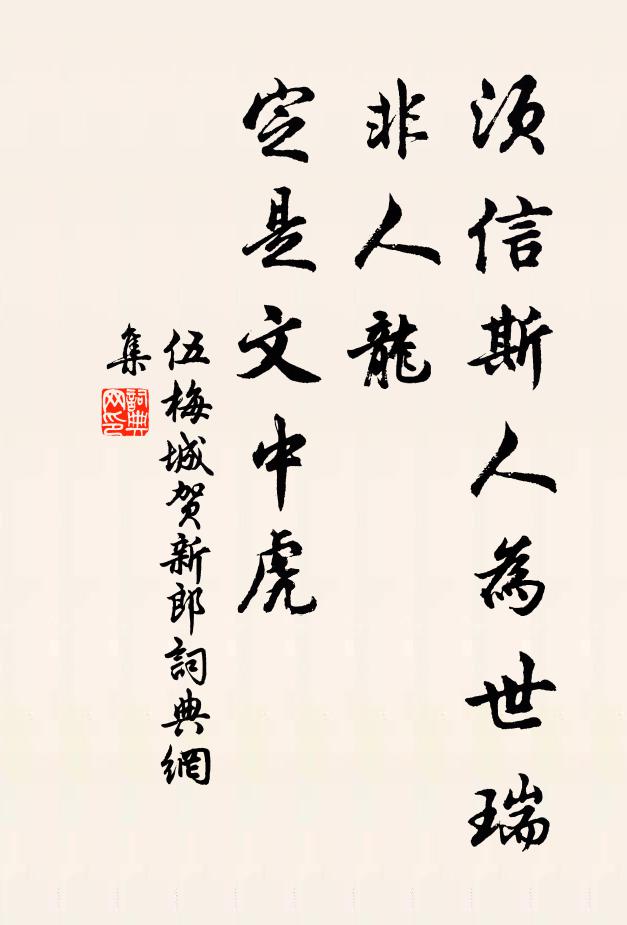 須信斯人為世瑞
非人龍
定是文中虎
伍梅城贺新郎詞典網
集
詞典
网印